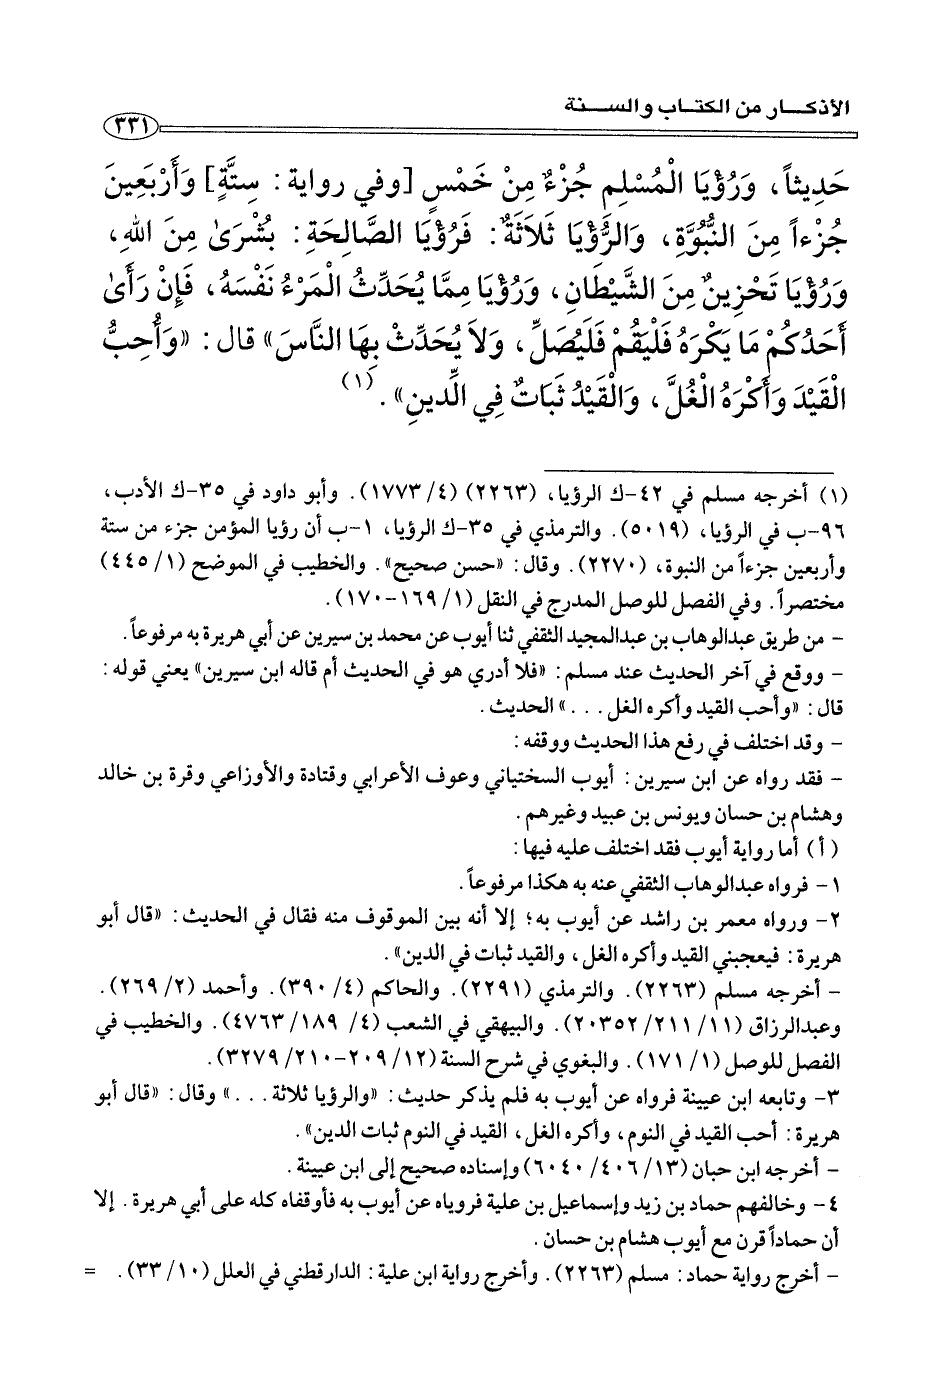 الأذكـــار من الكتـاب والســـنة
٣٣١
حَدِيثاً، وَرُؤْيَا الْمُسْلِمِ جُزْءٌ مِنْ خَمْسٍ [وفي رواية: سِتَّةٍ] وَأَرْبَعِينَ
جُزْءاً مِنَ النُّبُوَّةِ، وَالرُّؤْيَا ثَلَاثَةٌ: فَرُؤْيَا الصَّالِحَةِ: بُشْرَىٰ مِنَ اللهِ،
وَرُؤْيَا تَحْزِينٌ مِنَ الشَّيْطَانِ، وَرُؤْيَا مِمَّا يُحَدِّثُ الْمَرْءُ نَفْسَهُ، فَإِنْ رَأَىٰ
أَحَدُكُمْ مَا يَكْرَهُ فَلْيَقُمْ فَلْيُصَلِّ، وَلاَ يُحَدِّثْ بِهَا النَّاسَ» قال: «وَأُحِبُّ
الْقَيْدَ وَأَكْرَهُ الْغُلَّ، وَالْقَيْدُ ثَبَاتٌ فِي الدِّينِ». (١)
(١) أخرجه مسلم في ٤٢-ك الرؤيا، (٢٢٦٣) (٤/ ١٧٧٣). وأبو داود في ٣٥-ك الأدب،
٩٦-ب في الرؤيا، (٥٠١٩). والترمذي في ٣٥-ك الرؤيا، ١-ب أن رؤيا المؤمن جزء من ستة
وأربعين جزءاً من النبوة، (٢٢٧٠). وقال: «حسن صحيح». والخطيب في الموضح (١/ ٤٤٥)
مختصراً. وفي الفصل للوصل المدرج في النقل (١/ ١٦٩-١٧٠).
- من طريق عبدالوهاب بن عبدالمجيد الثقفي ثنا أيوب عن محمد بن سيرين عن أبي هريرة به مرفوعاً.
- ووقع في آخر الحديث عند مسلم: «فلا أدري هو في الحديث أم قاله ابن سيرين» يعني قوله:
قال: «وأحب القيد وأكره الغل ...» الحديث.
- وقد اختلف في رفع هذا الحديث ووقفه:
- فقد رواه عن ابن سيرين: أيوب السختياني وعوف الأعرابي وقتادة والأوزاعي وقرة بن خالد
وهشام بن حسان ويونس بن عبيد وغيرهم.
(أ) أما رواية أيوب فقد اختلف عليه فيها:
١- فرواه عبدالوهاب الثقفي عنه به هكذا مرفوعاً.
٢- ورواه معمر بن راشد عن أيوب به؛ إلا أنه بين الموقوف منه فقال في الحديث: «قال أبو
هريرة: فيعجبني القيد وأكره الغل، والقيد ثبات في الدين».
- أخرجه مسلم (٢٢٦٣). والترمذي (٢٢٩١). والحاكم (٤/ ٣٩٠). وأحمد (٢/ ٢٦٩).
وعبدالرزاق (١١/ ٢١١/ ٢٠٣٥٢). والبيهقي في الشعب (٤/ ١٨٩/ ٤٧٦٣). والخطيب في
الفصل للوصل (١/ ١٧١). والبغوي في شرح السنة (١٢/ ٢٠٩-٢١٠/ ٣٢٧٩).
٣- وتابعه ابن عيينة فرواه عن أيوب به فلم يذكر حديث: «والرؤيا ثلاثة ...» وقال: «قال أبو
هريرة: أحب القيد في النوم، وأكره الغل، القيد في النوم ثبات الدين».
- أخرجه ابن حبان (١٣/ ٤٠٦/ ٦٠٤٠) وإسناده صحيح إلى ابن عيينة.
٤- وخالفهم حماد بن زيد وإسماعيل بن علية فروياه عن أيوب به فأوقفاه كله على أبي هريرة. إلا
أن حماداً قرن مع أيوب هشام بن حسان.
- أخرج رواية حماد: مسلم (٢٢٦٣). وأخرج رواية ابن علية: الدارقطني في العلل (١٠/ ٣٣). =